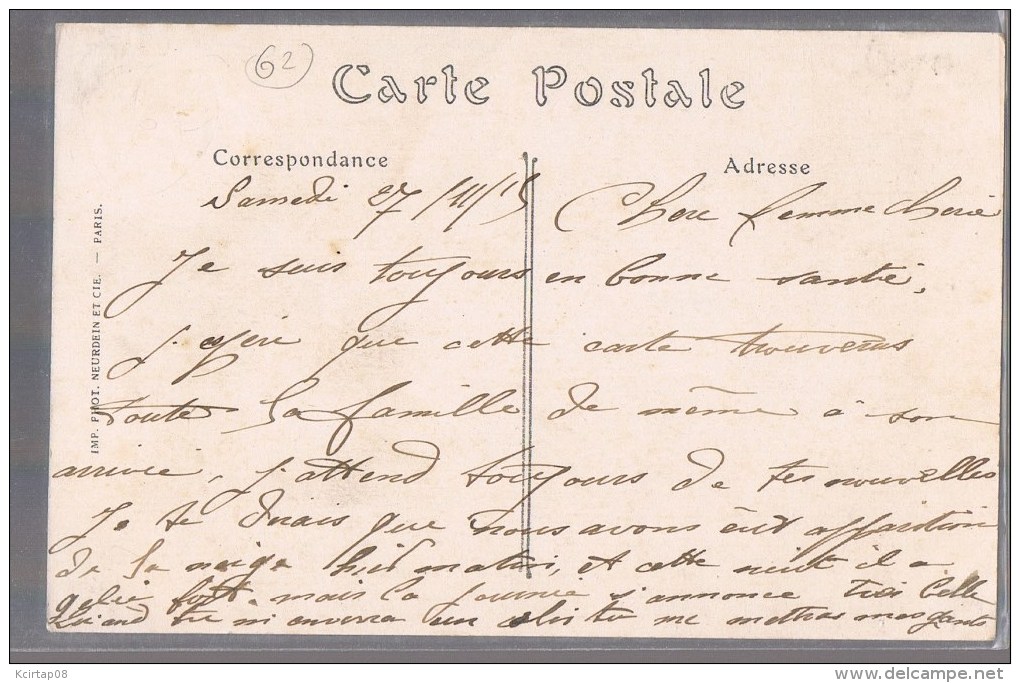 62
Carte Postale
Correspondance
Adresse
IMP. PHOT. NEURDEIN ET CIE. — PARIS.
Samedi 27/11/15 Chere femme cherie
Je suis toujours en bonne santé,
j'espère que cette carte trouveras
toute la famille de même à son
arrivée, j'attend toujours de tes nouvelles
Je te dirais que nous avons eut apparition
de la neige hier matin, et cette nuit il a
gelée fort mais la journée s'annonce très belle
Quand tu m'enverra un colis tu me mettras mes gants
Kcirtap08
delcampe.net